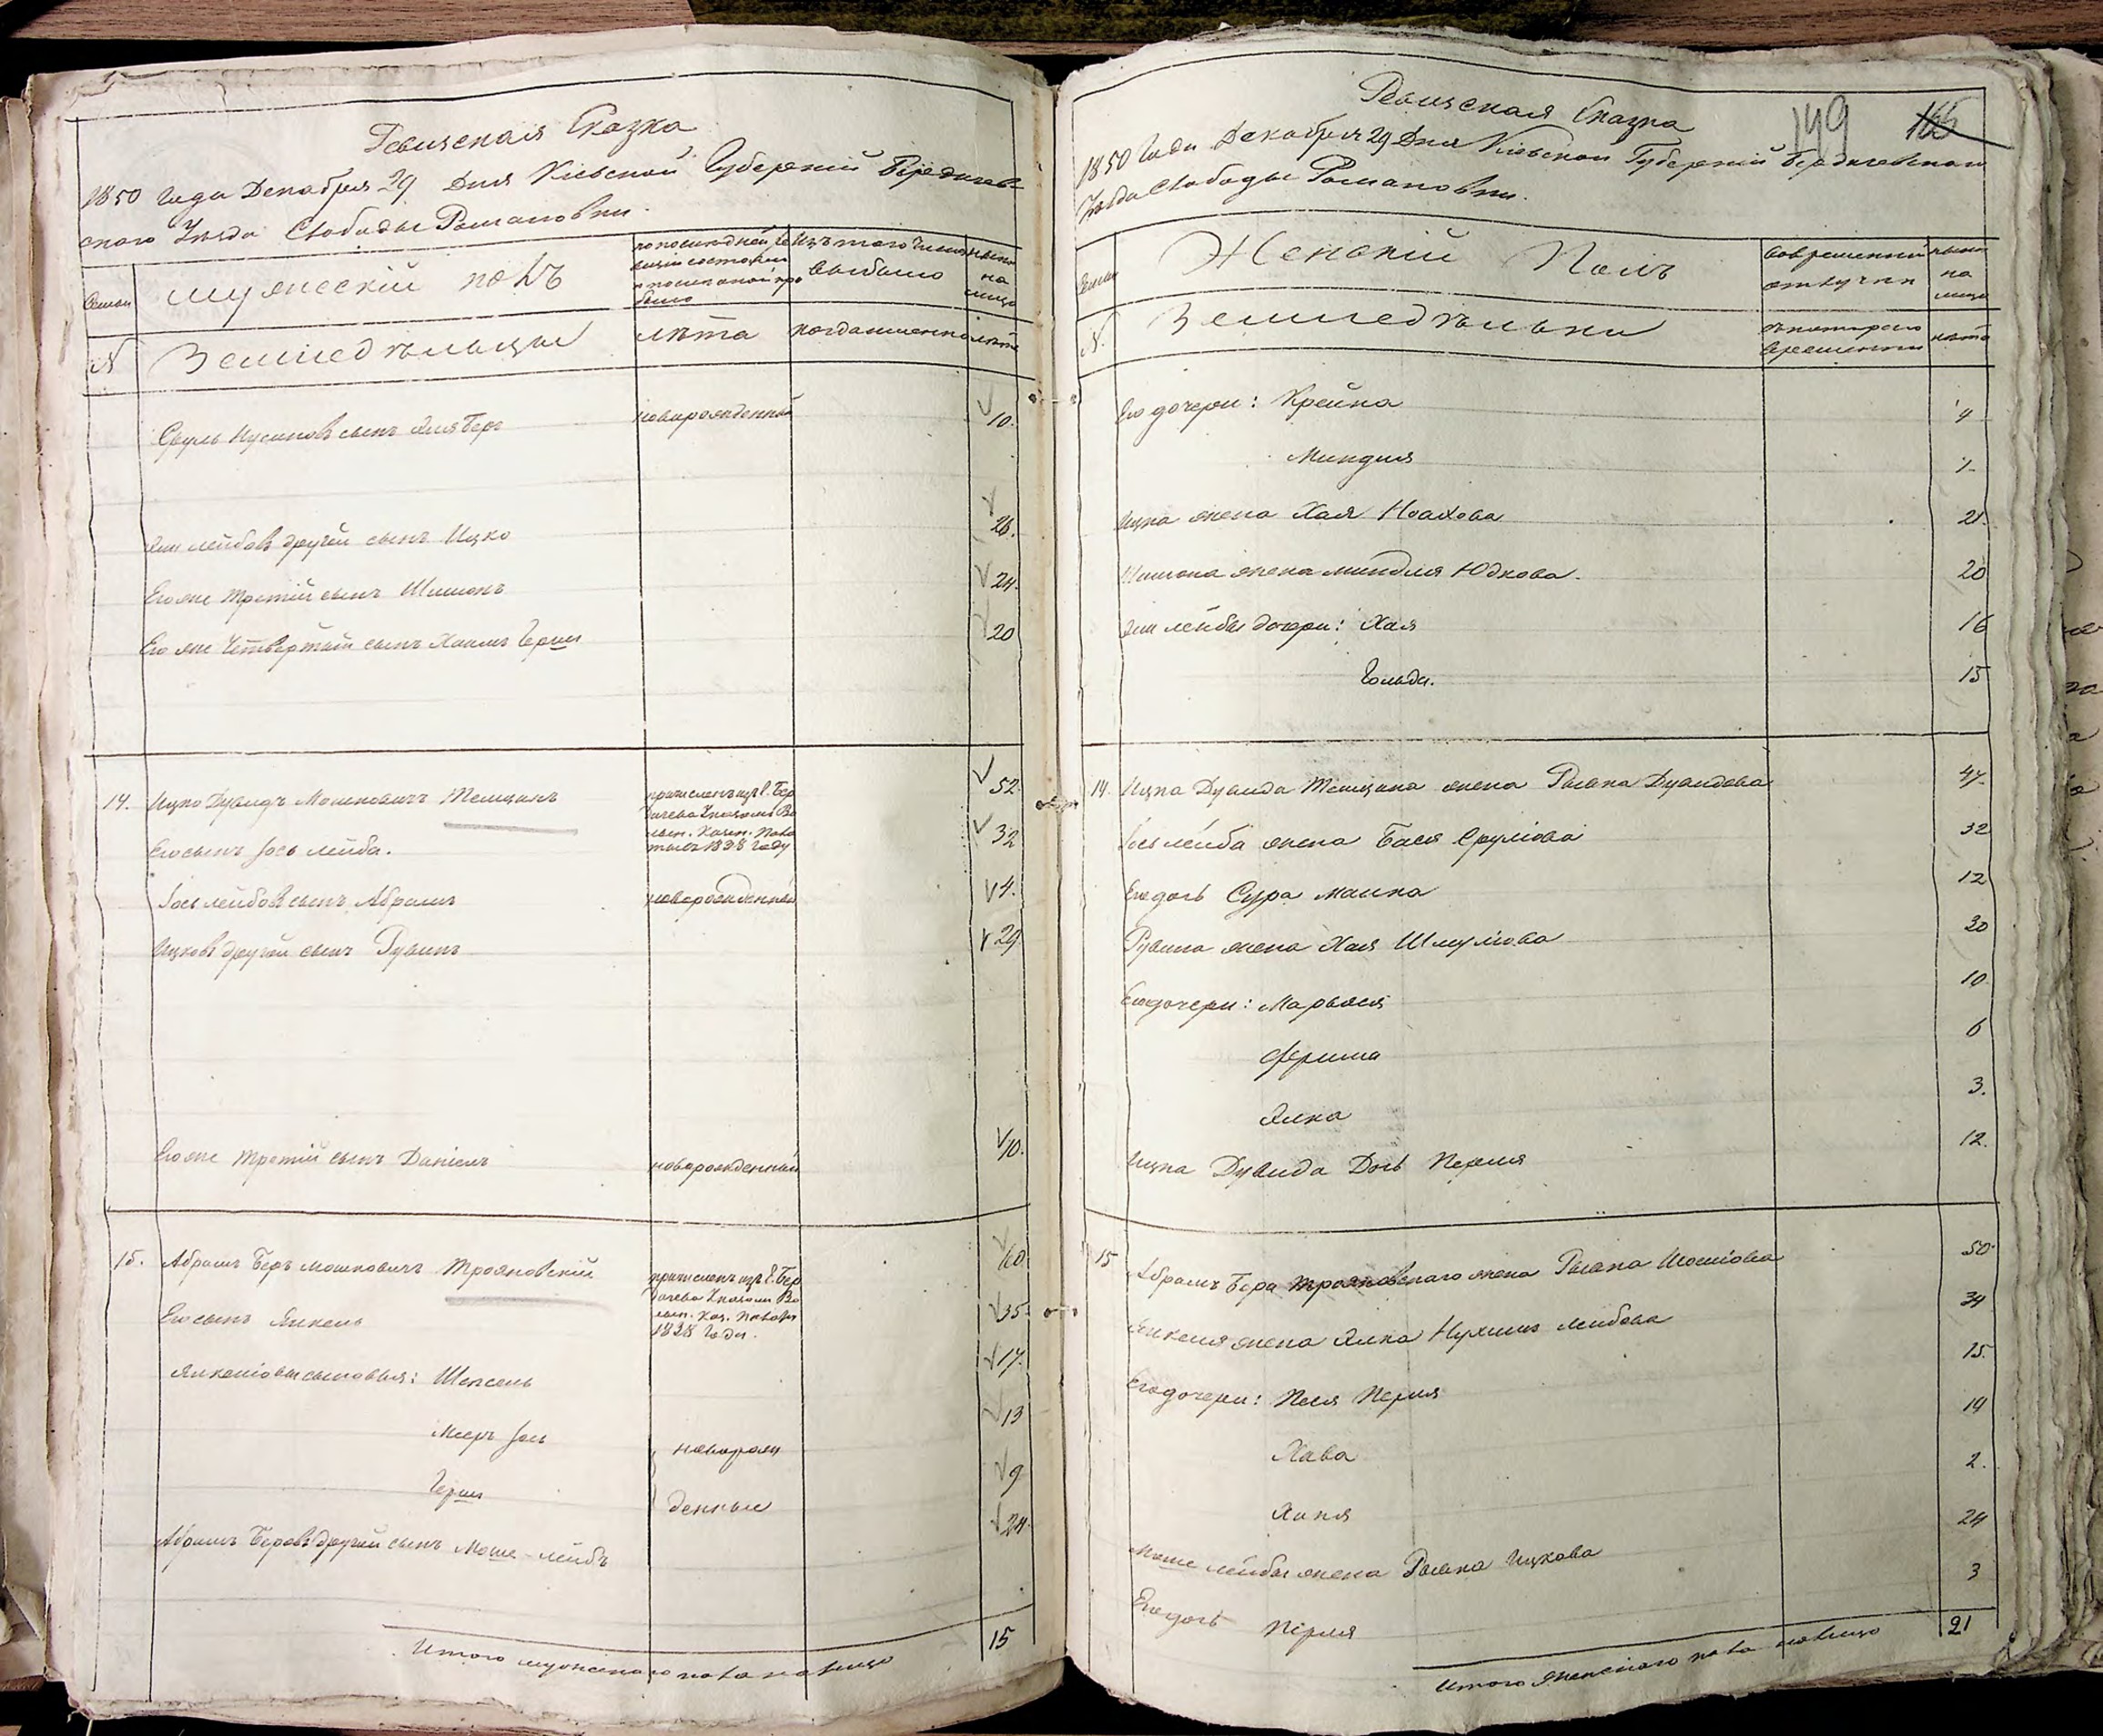 Ревизская Сказка
1850 Года Декабря 29 Дня Кіевской Губерніи Бердичев-
скаго Уезда Свободы Романовки.
Семьи
мужескій полъ
по последней ре
визіи состояло
и после оной при
было
Изъ того числа
выбыло
ныне
на
лицо
N
Земледѣльцы
лѣта
когда именно
лѣта
Сруль Нусиновъ сынъ Яня Беръ новорожденный 10.
Лейбовъ другій сынъ Ицко 26.
Его же третій сынъ Шимонъ 24.
Его же Четвертый сынъ Хаимъ Герш 20
14. Ицко Дувидъ Мошковичъ Темцинъ 52.
причисленъ изъ г. Бер
дичева Указомъ Во
лын. Казен. Пала
ты въ 1838 году
Его сынъ Іось лейба. 32
Іось лейбовъ сынъ Абрамъ новорожденный 4.
Ицковъ другій сынъ Рувинъ 29
Его же третій сынъ Даніелъ новорожденный 10.
15. Абрамъ Беръ мошковичъ Трояновскій 60
причисленъ изъ г. Бер
дичева Указомъ Во
лын. Каз. Палаты
1838 Года.
Его сынъ Янкель 35.
Янкеліовы сыновья: Шепсель 17.
Мееръ Іось 13
новорож
Герш 9
денные
Абрамъ Беровъ другій сынъ Моше-лейбъ 24.
Итого мужескаго пола налицо 15
Ревизская Сказка
149
165
1850 Года Декабря 29 Дня Кіевской Губерніи Бердичевскаго
Уезда Свободы Романовки.
Семьи
Женскій Полъ
Во временной
отлучке
ныне
на
лицо
N.
Земледѣльки
съ котораго
времени
лѣта
Его дочери: Крейна 4
Миндля 1
Ицка жена Хая Ноахова 21.
Шимона жена миндля Юдкова. 20
лейбы дочери: Хая 16
Гольда. 15
14. Ицка Дувида Темцина жена Рывка Дувидова 47.
Іось лейба жена Бася Сруліова 32
Его дочь Сура малка 12
Рувина жена Хая Шмуліова 30
Его дочери: Марьяся 10
Фрима 6
Элка 3.
Ицка Дувида Дочь Перля 12.
15 Абрамъ Бера Трояновскаго жена Рывка Иосіова 50
Янкеля жена Элка Нухимъ лейбова 34
Его дочери: Песя Перля 15.
Хава 14
Хана 2.
Моше лейбы жена Рывка Ицкова 24
Его дочь Пірля 3
Итого Женскаго пола налицо 21